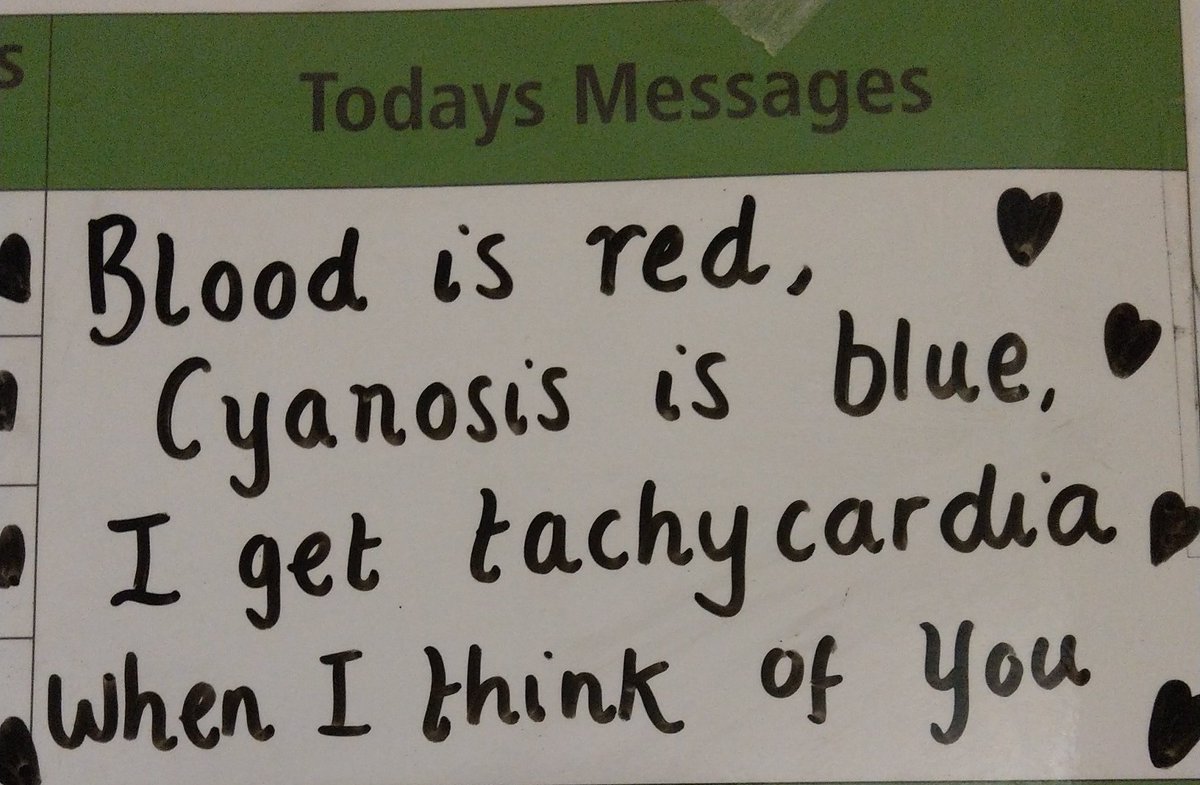 s
Todays Messages
Blood is red,
Cyanosis is blue,
I get tachycardia
when I think of you